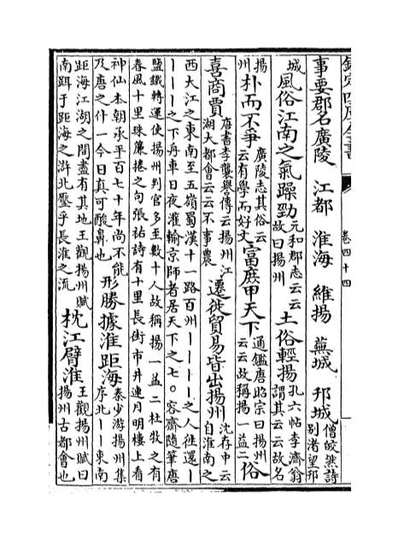 欽定四庫全書
卷四十四
事要郡名廣陵 江都 淮海 維揚 蕪城 邗城僧皎然詩
別渚望邗
城風俗江南之氣躁勁元和郡志云云
故曰揚州土俗輕揚孔六帖李濟翁
謂其云云故名
揚
州朴而不爭廣陵志其俗云
云有學而好文富庶甲天下通鑑唐昭宗曰揚州
云云故稱揚一益二俗
喜商賈唐書李襲譽傳云揚州江
湖大都會云云不事農遷徙貿易皆出揚州沈存中云
自淮南之
西大江之東南至五嶺蜀漢十一路百州丨丨丨之人往還丨
丨丨丨之下舟車日夜灌輸京師者居天下之七○容齋隨筆唐
鹽鐵轉運使揚州判官多至數十人故稱揚一益二杜牧之有
春風十里珠簾捲之句張祐詩有十里長街市井連月明橋上看
神仙本朝承平百七十年尚不能
及唐之什一今日真可酸鼻也形勝據淮距海秦少游揚州集
序北丨丨東南
距海江湖之間盡有其地王觀揚州賦
南鉺于距海之滸北壓乎長淮之流枕江臂淮王觀揚州賦曰
揚州古都會也